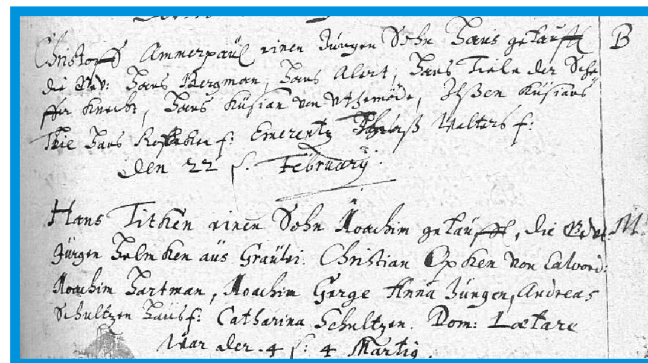 Christoff Ammerpaul einen Jungen Sohn Hans getaufft B
die Gev: Hans Bergman, Hans Alert, Hans Tieln der Sche
ffer Knecht, Hans Kusian von Uthmöde, Kusians
Hans f: Emerentz Walters f:
den 22 f. February.
Hans Titken einen Sohn Joachim getaufft, die Gev M
Jürgen Helmken aus Christian Opken von Calvord:
Joachim Hartman, Joachim Gerge Anna Jungen, Andreas
Schultzen Hausf: Catharina Schultzen. Dom: Lætare
war der 4 f: 4 Martig.